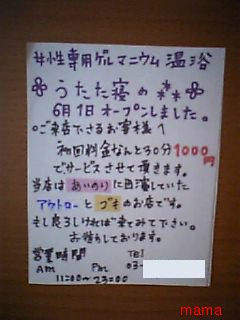 女性専用ゲルマニウム温浴
うたた寝の
6月1日オープンしました。
○ご来店下さるお客様へ
初回料金なんと30分1000円
でサービスさせて頂きます。
当店はあいのりに出演していた
アウトローとゴキのお店です。
もし良ろしければ来てみて下さい。
お待ちしております。
営業時間 TEL
AM PM 03-
11:00〜23:00
mama